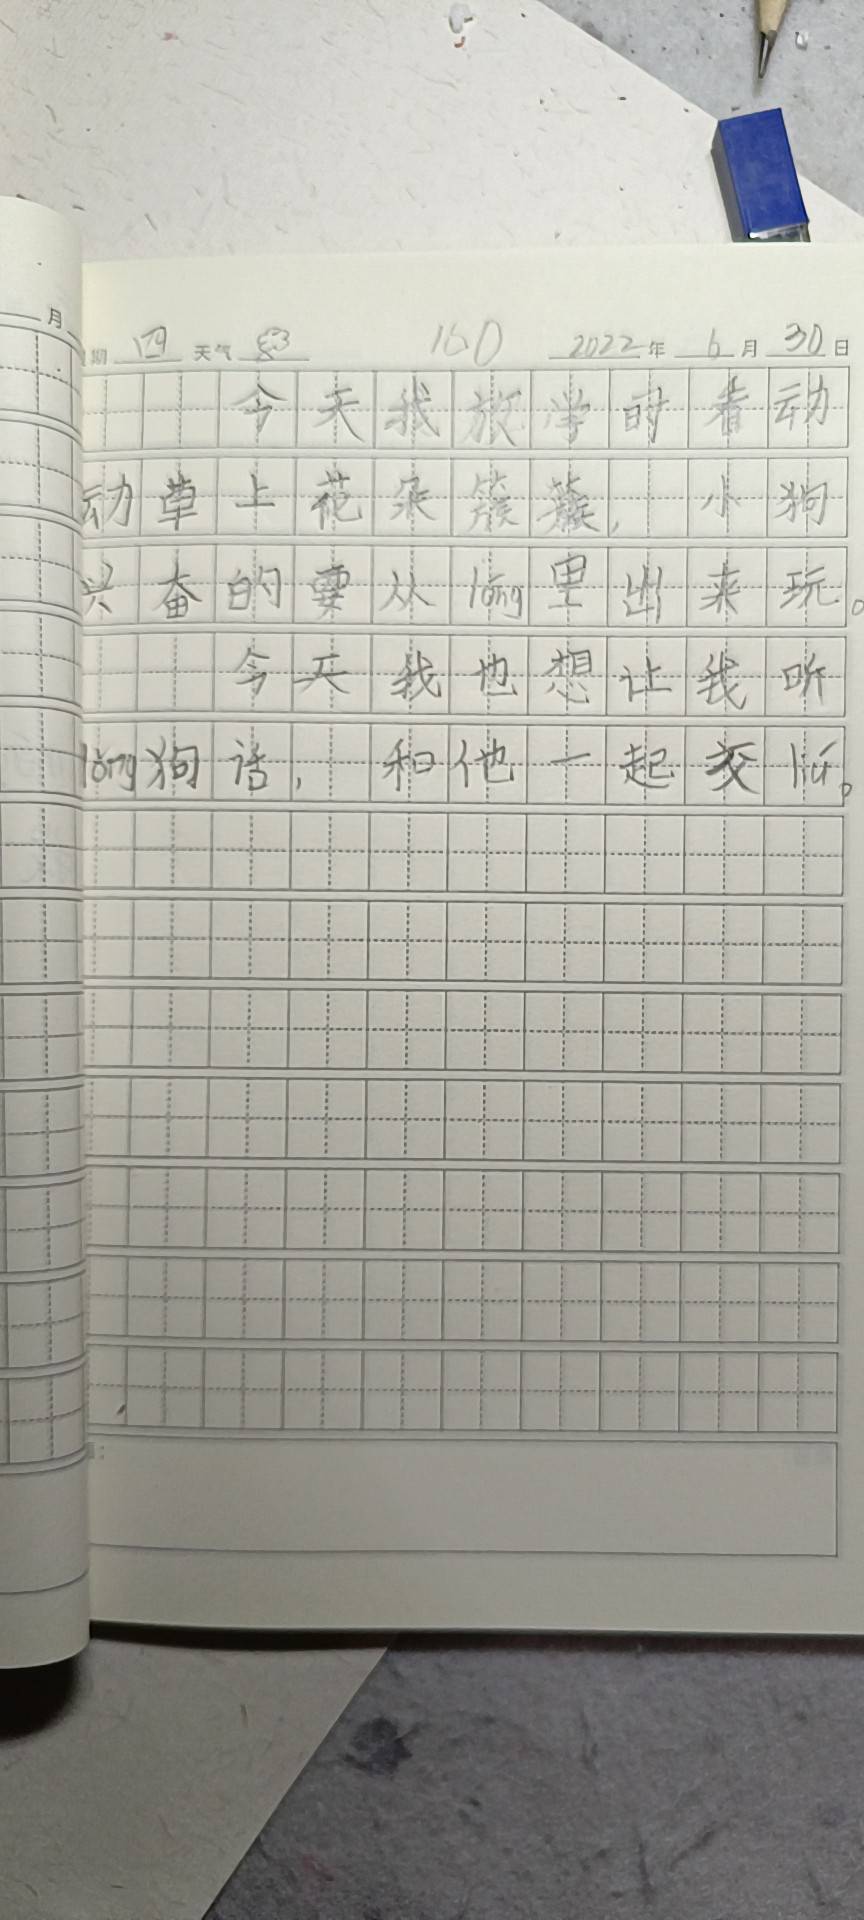 月
期 四 天气 160 2022年 6月 30日
今天我放学时看动
动草上花朵簇簇，小狗
兴奋的要从lóng里出来玩。
今天我也想让我听
lóng狗话，和他一起交liú。